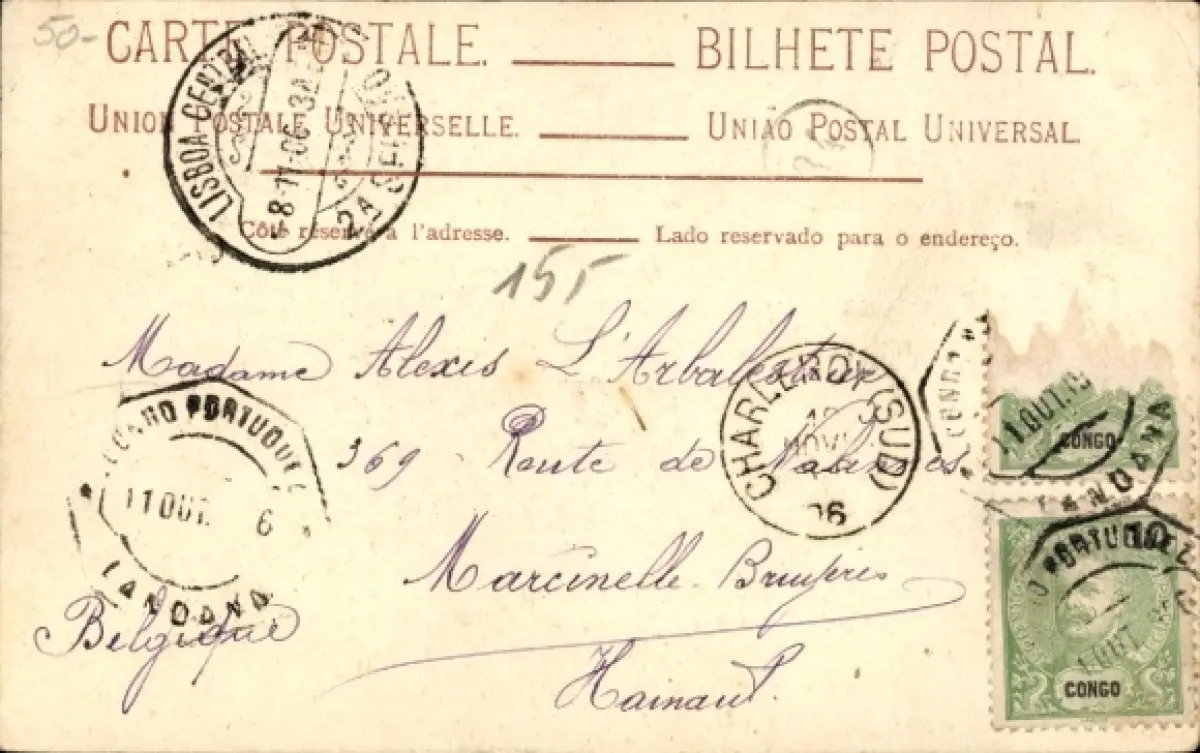 50-
CARTE POSTALE. BILHETE POSTAL.
UNION POSTALE UNIVERSELLE. UNIÃO POSTAL UNIVERSAL.
LISBOA-CENTRAL
8-11-06
2A SECÇÃO
Côté réservé à l'adresse. Lado reservado para o endereço.
155
Madame Alexis L'Arbalestrier
CHARLEROI (SUD)
NOV
06
369 Route de
Marcinelle
Belgique
Hainaut.
CONGO PORTUGUEZ
11 OUT. 6
LANDANA
11 OUT.
CONGO
LANDANA
10
PORTUGUEZ
OUT
CONGO